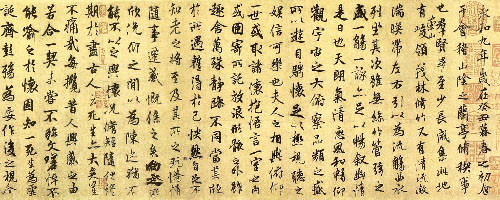 永和九年歲在癸丑暮春之初會
于會稽山陰之蘭亭脩稧事
也群賢畢至少長咸集此地
有崇山峻領茂林脩竹又有清流激
湍暎帶左右引以為流觴曲水
列坐其次雖無絲竹管弦之
盛一觴一詠亦足以暢敘幽情
是日也天朗氣清惠風和暢仰
觀宇宙之大俯察品類之盛
所以遊目騁懷足以極視聽之
娛信可樂也夫人之相與俯仰
一世或取諸懷抱悟言一室之內
或因寄所託放浪形骸之外雖
趣舍萬殊靜躁不同當其欣
於所遇暫得於己怏然自足不
知老之將至及其所之既惓情
隨事遷感慨係之矣向之所欣
俛仰之閒以為陳迹猶不
能不以之興懷況脩短隨化終
期於盡古人云死生亦大矣豈
不痛哉每攬昔人興感之由
若合一契未嘗不臨文嗟悼不
能喻之於懷固知一死生為虛
誕齊彭殤為妄作後之視今